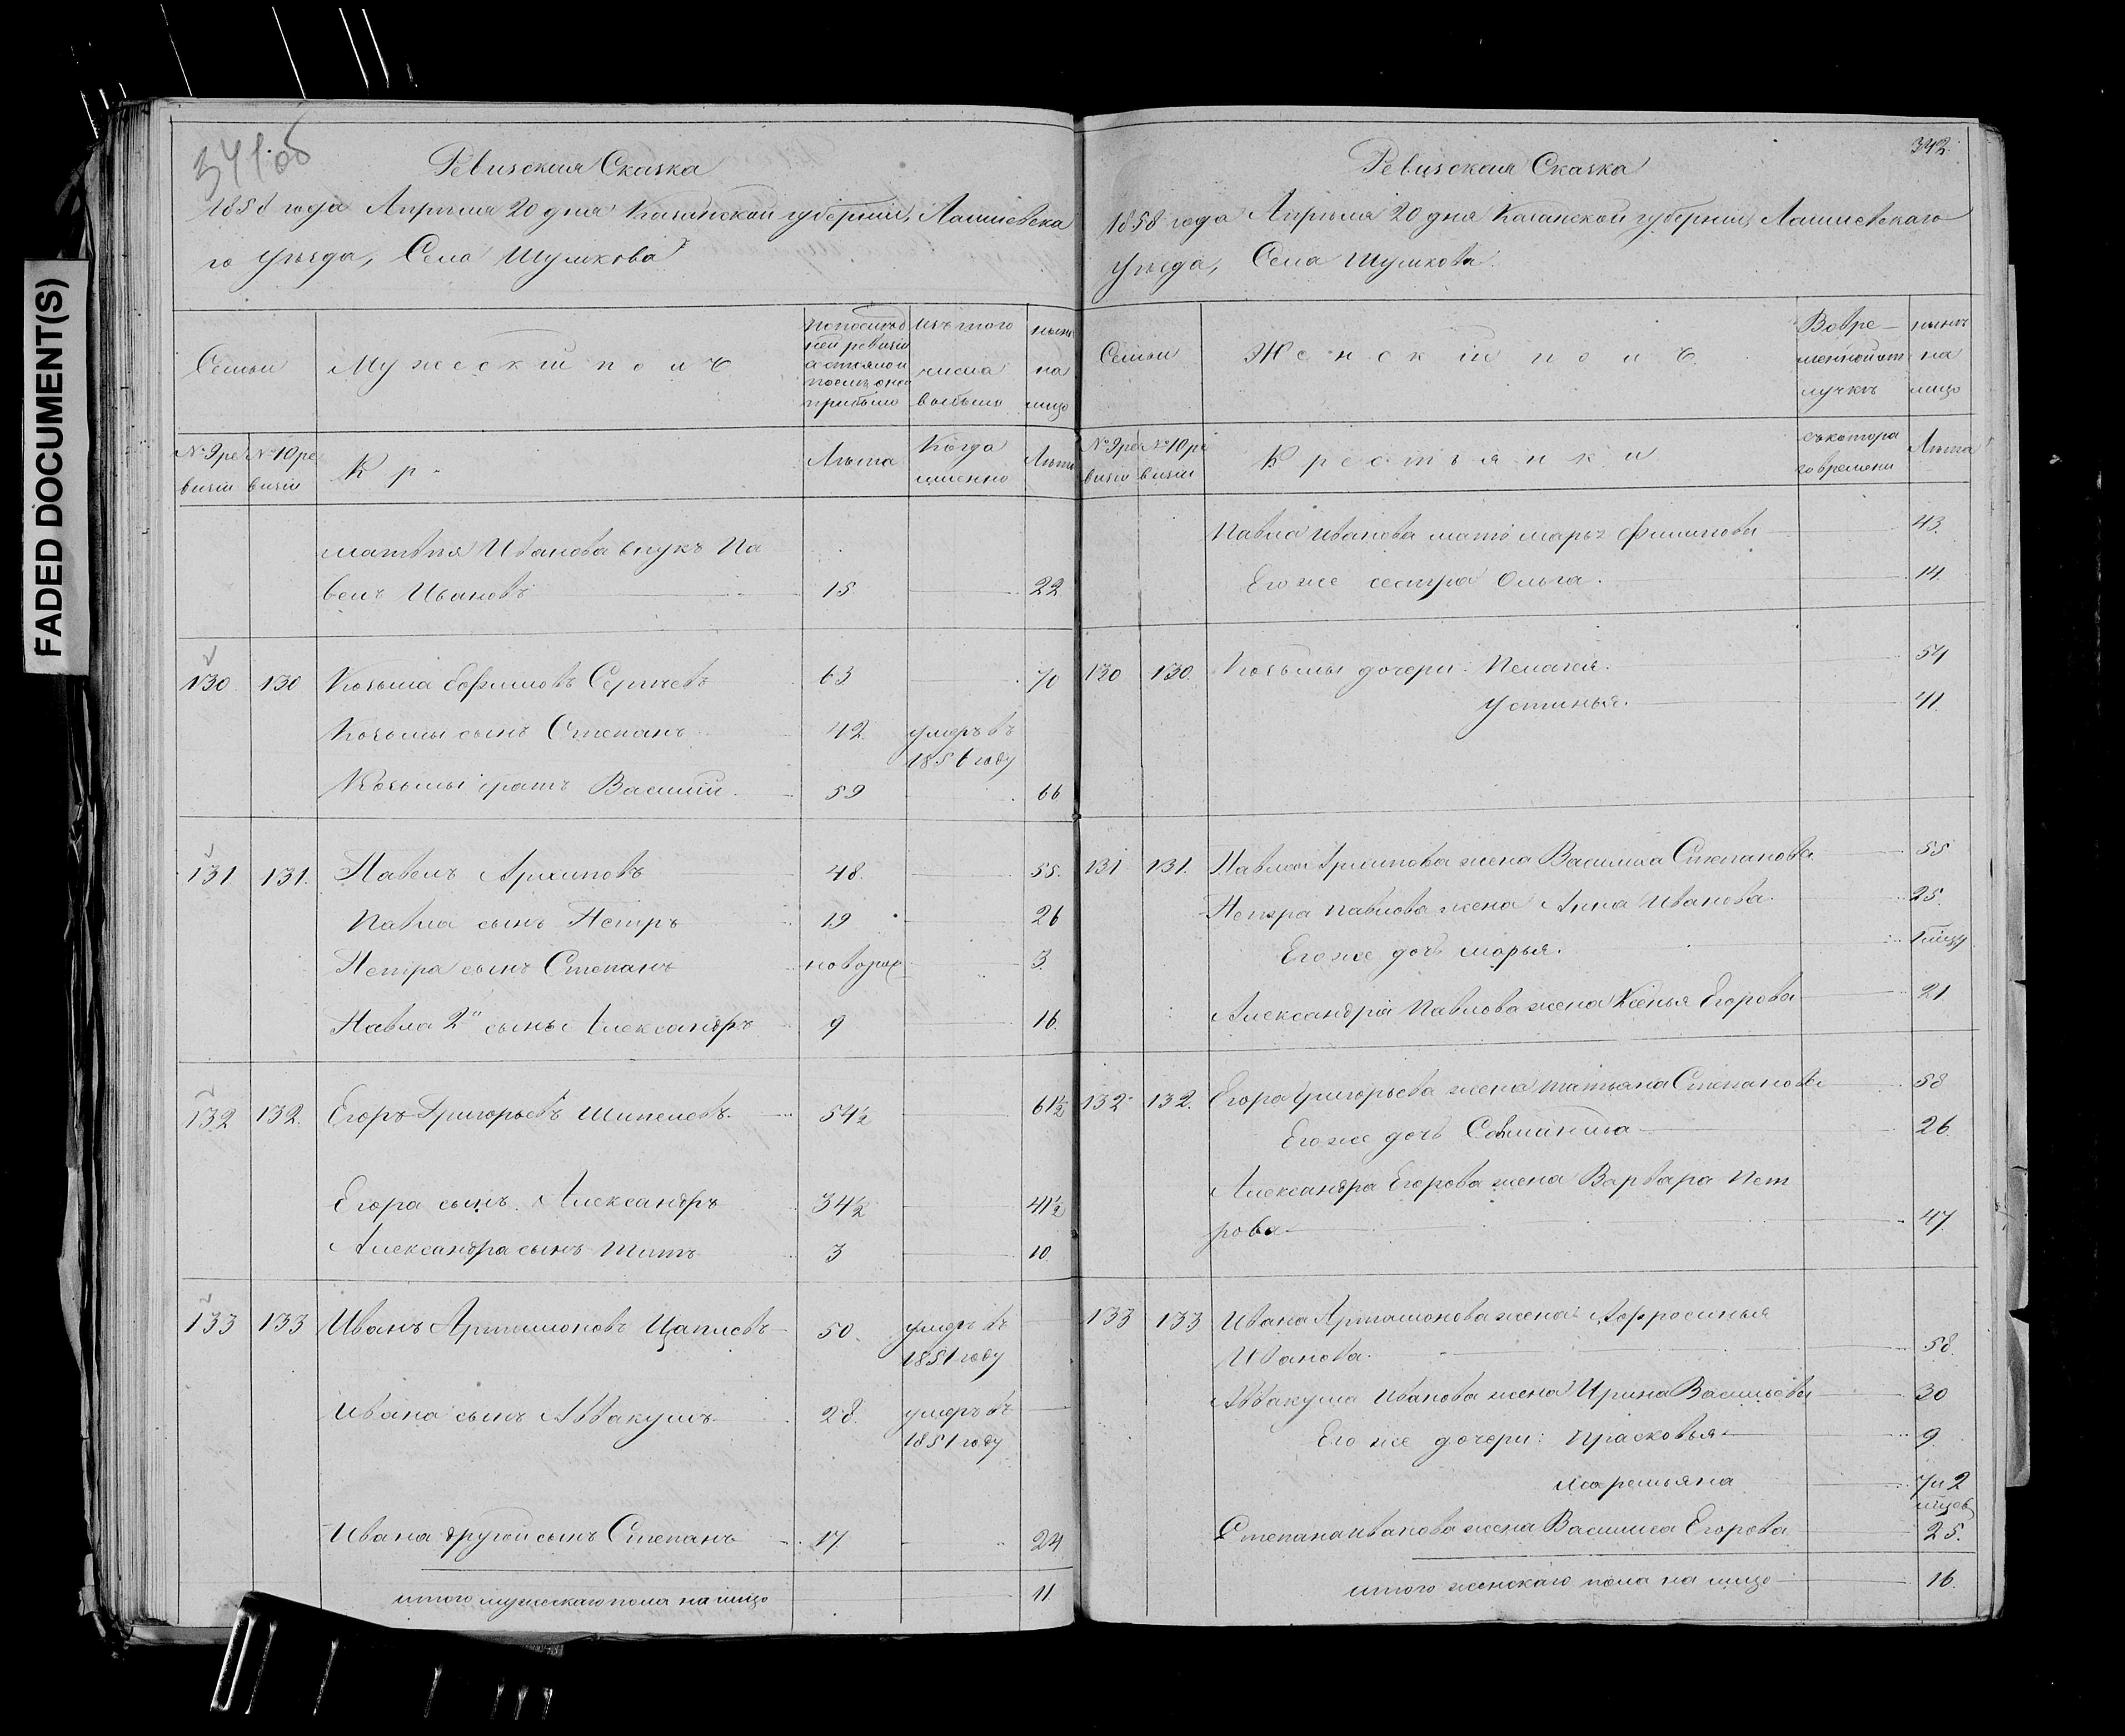 FADED DOCUMENT(S)
341 об
Ревизская Сказка
1858 года Апреля 20 дня Казанской губернии, Лаишевска
го уезда, Села Шумкова
Семьи
Мужеский полъ
По послѣд
ней ревизіи
состояло и
послѣ оной
прибыло
Изъ того
числа
выбыло
нынѣ
на
лицо
№ 9 ре
визіи
№ 10 ре
визіи
Кр.
Лѣта
Когда
именно
Лѣта
Матвѣя Иванова внукъ Па
велъ Ивановъ 15 22
130 130 Козьма Ефимовъ 63 70
Козьмы сынъ Степанъ 42 умеръ въ
1856 году
Козьмы братъ Василій 59 66
131 131. Павелъ Архиповъ 48. 55.
Павла сынъ Петръ 19 26
Петра сынъ Степанъ новорож 3.
Павла 2й сынъ Александръ 9 16.
132 132. Егоръ Григорьевъ Шипилевъ 54½ 61½
Егора сынъ Александръ 34½ 41½
Александра сынъ Титъ 3 10
133 133 Иванъ Артамоновъ Цаплевъ 50. умеръ въ
1851 году
Ивана сынъ Аввакумъ 28. умеръ въ
1851 году
Ивана другой сынъ Степанъ 17 24
итого мужескаго пола на лицо 11.
342.
Ревизская Сказка
1858 года Апреля 20 дня Казанской губерніи, Лаишевскаго
уезда, Села Шумкова.
Семьи
Женскій полъ
Во вре-
менной от
лучкѣ
нынѣ
на
лицо
№ 9 ре
визіи
№ 10 ре
визіи
Крестьянки
съ котора
го времени
Лѣта
Павла Иванова мать Марья Филипова 43.
Его же сестра Ольга. 14
130 130. Козьмы дочери: Пелагея. 54
Устинья. 41.
131 131. Павла Архипова жена Василиса Степанова 55
Петра Павлова жена Анна Иванова. 25.
Его же дочь Марья.
Александра Павлова жена Ксенья Егорова 21.
132 132. Егора Григорьева жена Татьяна Степанова 58
Его же дочь 26.
Александра Егорова жена Варвара Пет
рова 47.
133 133 Ивана Артамонова жена Афросинья
Иванова. 58.
Аввакума Иванова жена Ирина Васильева 30
Его же дочери: Прасковья 9
Маремьяна 7 и 2
мѣсяц
Степана Иванова жена Василиса Егорова 25.
итого женскаго пола на лицо 16.